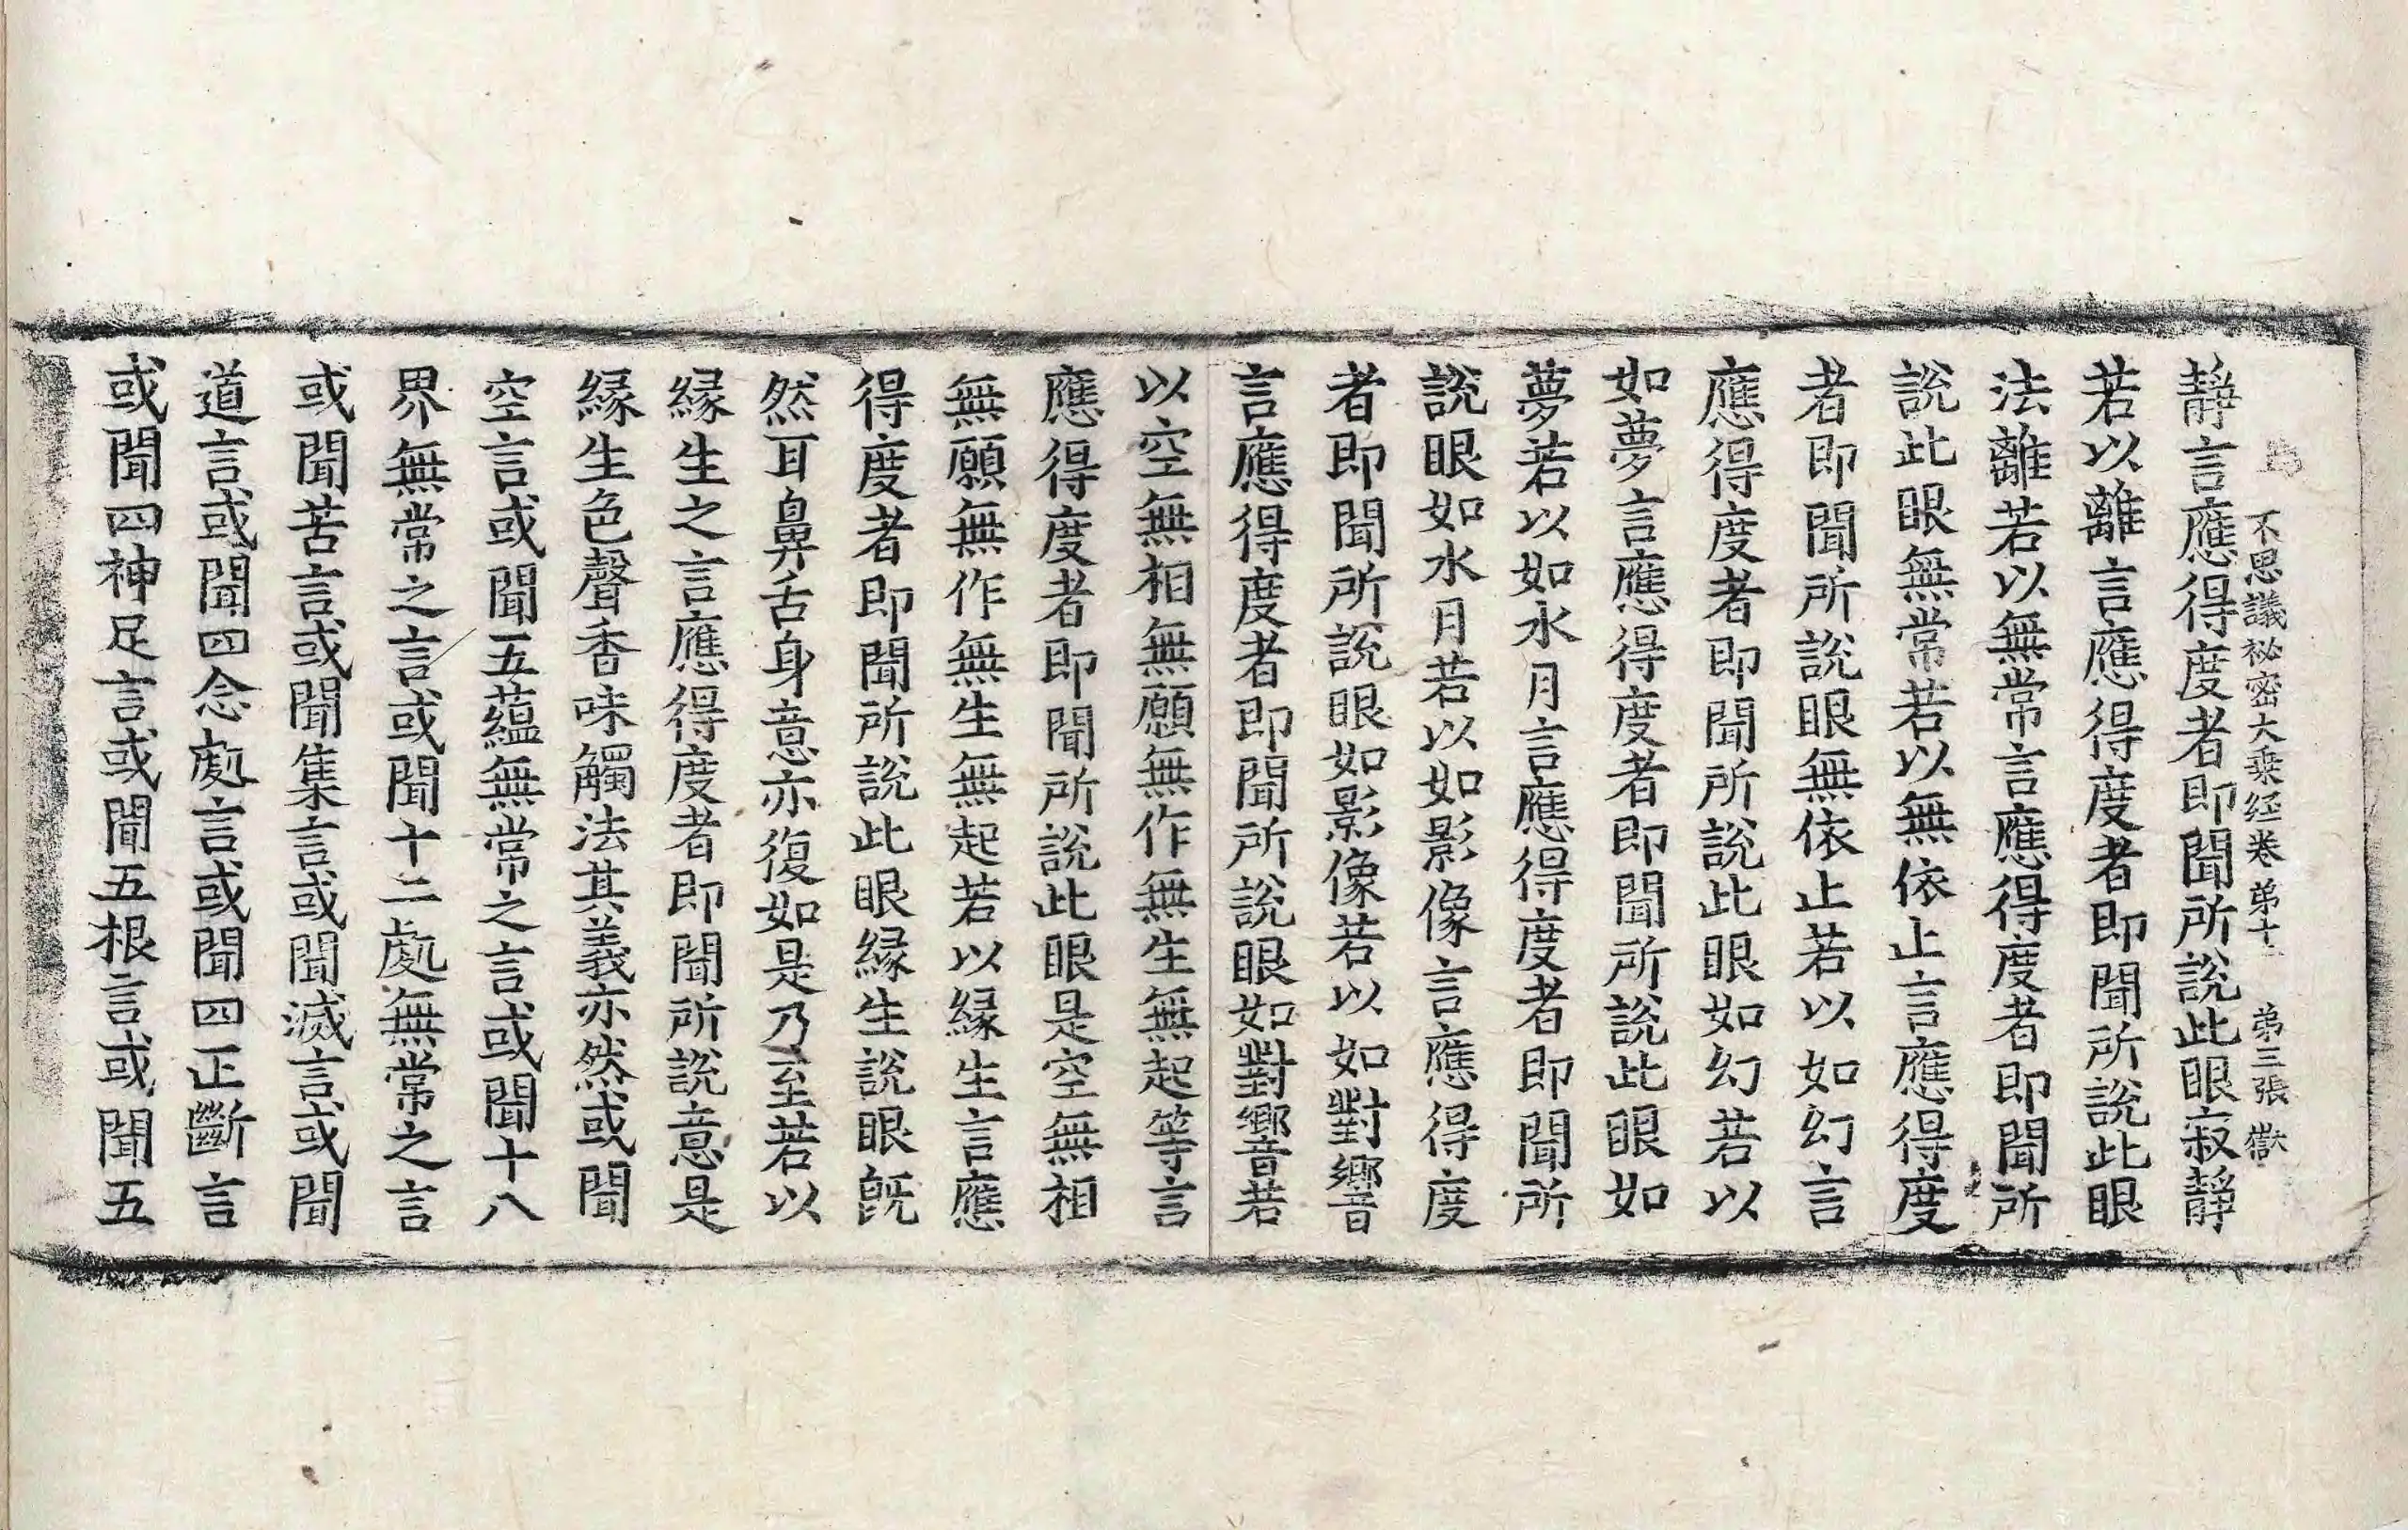 不思議祕密大乘经卷弟十二 弟三張 獄
静言應得度者即聞所說此眼寂靜
若以離言應得度者即聞所說此眼
法離若以無常言應得度者即聞所
說此眼無常若以無依止言應得度
者即聞所說眼無依止若以如幻言
應得度者即聞所說此眼如幻若以
如夢言應得度者即聞所說此眼如
夢若以如水月言應得度者即聞所
說眼如水月若以如影像言應得度
者即聞所說眼如影像若以如對響
言應得度者即聞所說眼如對響若
以空無相無願無作無生無起等言
應得度者即聞所說此眼是空無相
無願無作無生無起若以緣生言應
得度者即聞所說此眼緣生說眼既
然耳鼻舌身意亦復如是乃至若以
緣生之言應得度者即聞所說意是
緣生色聲香味觸法其義亦然或聞
空言或聞五蘊無常之言或聞十八
界無常之言或聞十二處無常之言
或聞苦言或聞集言或聞滅言或聞
道言或聞四念處言或聞四正斷言
或聞四神足言或聞五根言或聞五